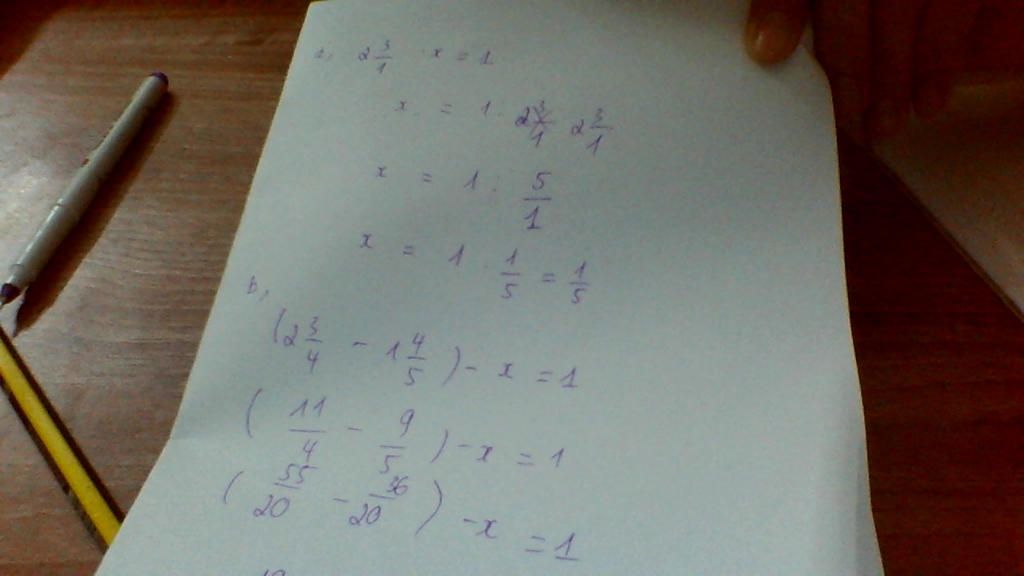 a, 2 3/1 · x = 1
x = 1 : 2 3/1 2 3/1
x = 1 : 5/1
x = 1 · 1/5 = 1/5
b,
(2 3/4 - 1 4/5) - x = 1
(11/4 - 9/5) - x = 1
(55/20 - 36/20) - x = 1